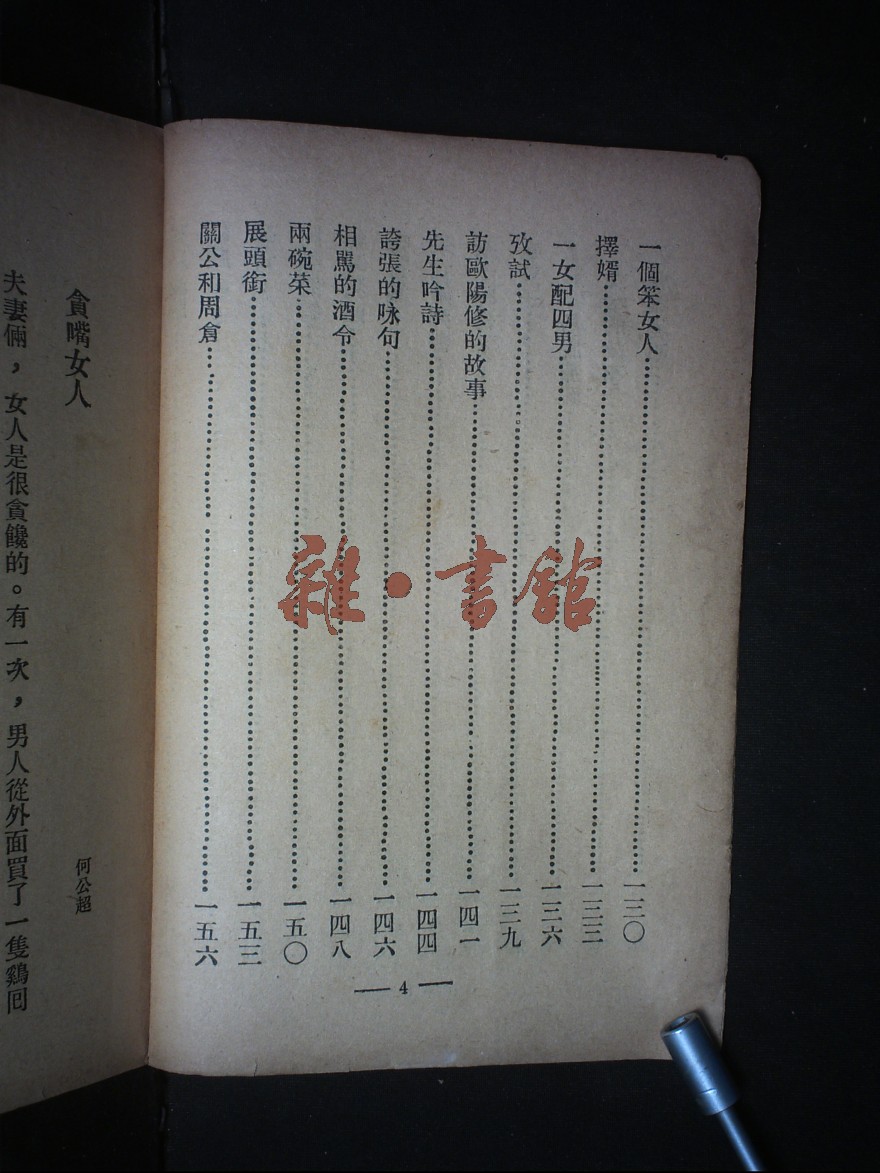 一個笨女人……一三〇
擇婿……一三三
一女配四男……一三六
攷試……一三九
訪歐陽修的故事……一四一
先生吟詩……一四四
誇張的咏句……一四六
相駡的酒令……一四八
兩碗菜……一五〇
展頭銜……一五三
關公和周倉……一五六
— 4 —
貪嘴女人
何公超
夫妻倆，女人是很貪饞的。有一次，男人從外面買了一隻鷄囘
雜·書館